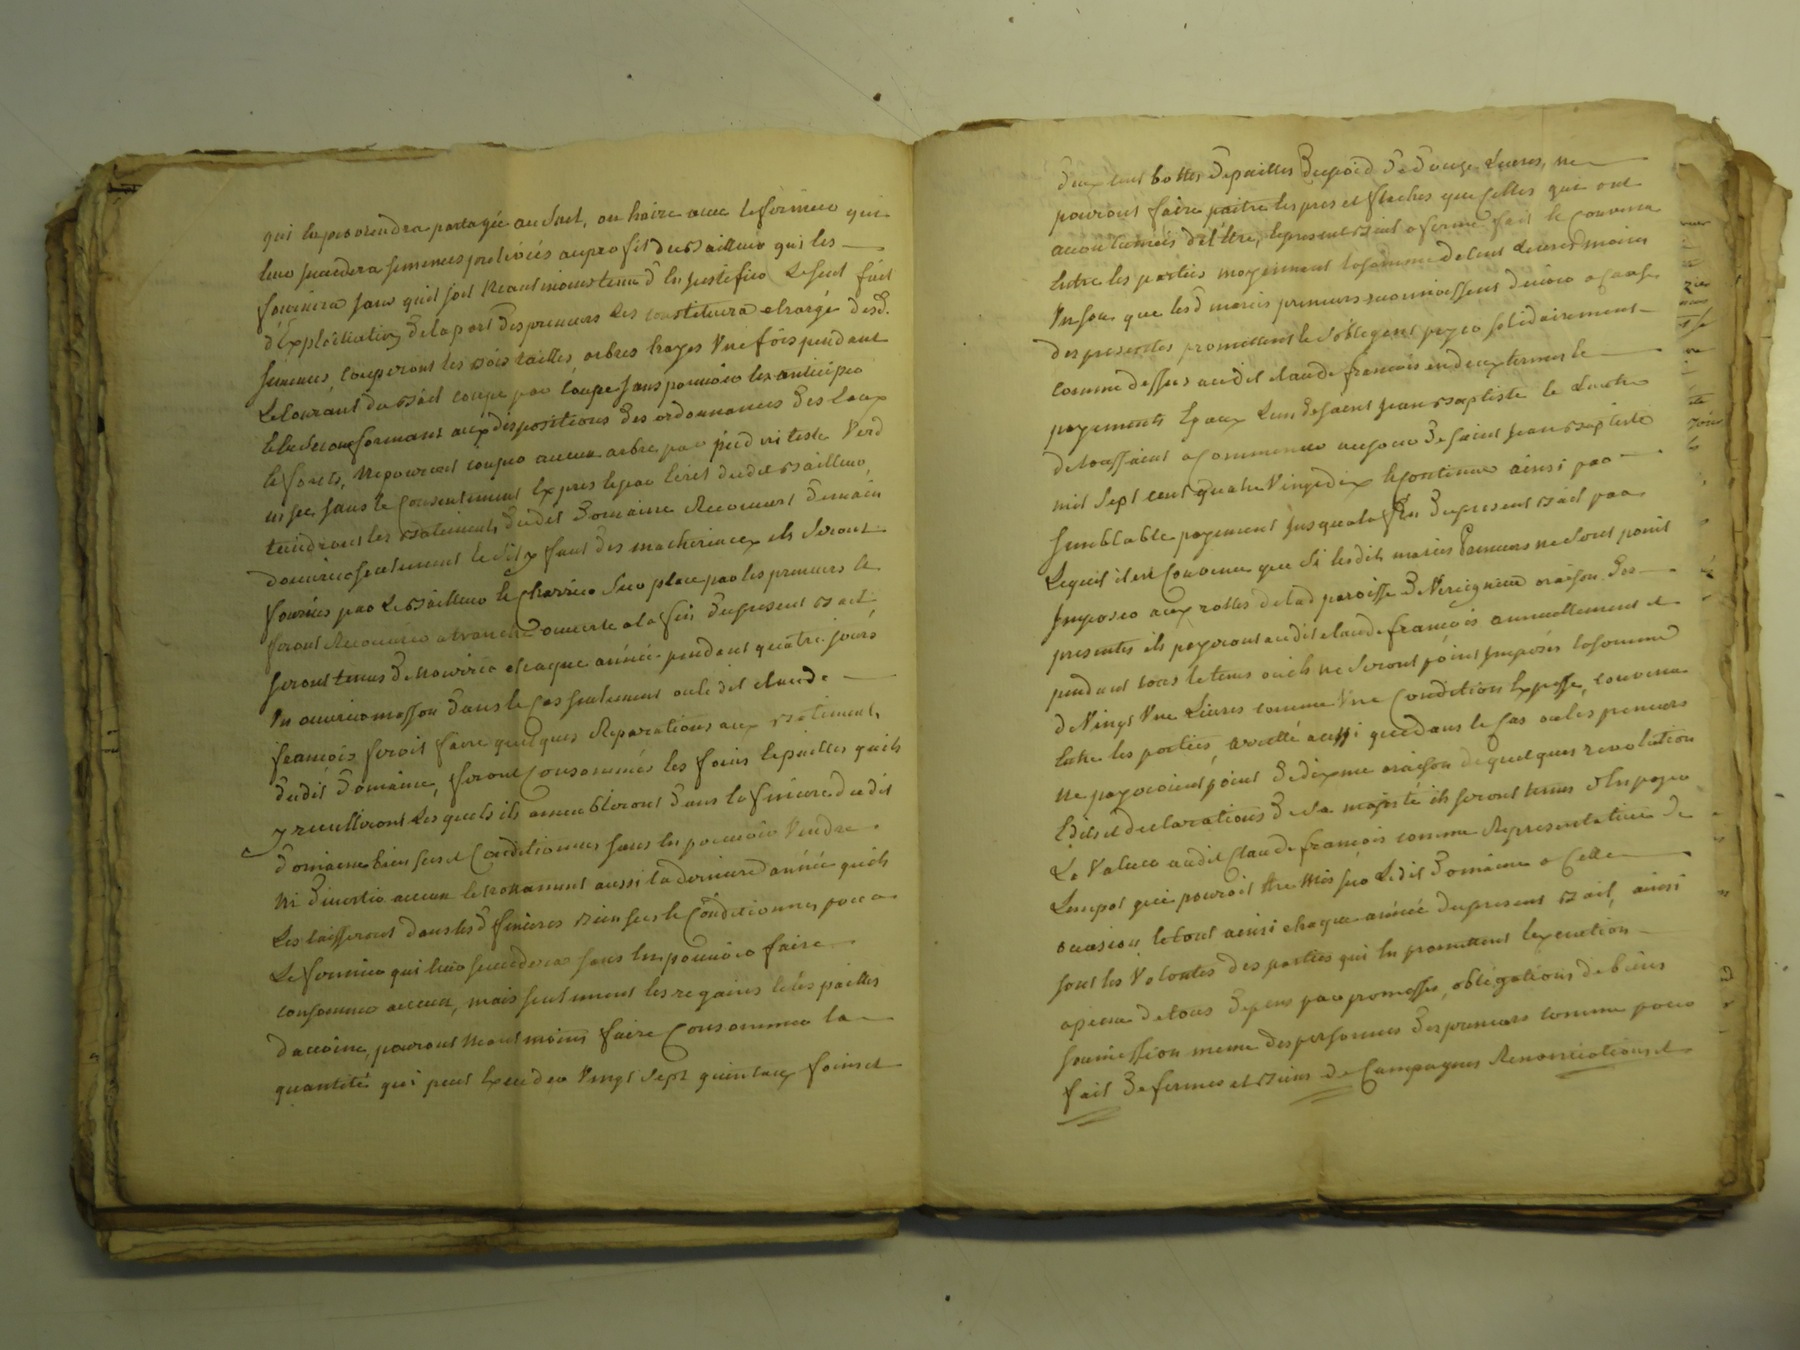 qui en proviendra partagée au sact, ou haire avec le fermier qui
leur succedera semences prélevées au profit du Bailleur qui les
fournira sans qu'il soit neantmoins tenu d'en justifier Le seul fait
d'Exploitation de la part des preneurs les constituera chargé desd.
semences, couperont les bois tailles arbres hayes Une fois pendant
Le courant du Bail coupe par coupe sans pouvoir les anticiper
et en se conformant aux dispositions des ordonnances des Eaux
et forets, Ne pouront couper aucun arbre par pied ni teste Verd
ni sec sans le Consentement Expres et par Ecrit dudit Bailleur,
tiendront les Batiments dudit Domaine Recouvert de main
d'ouvrier seulement le surplus des materiaux ils seront
fournis par Le Bailleur et Charrier sur place par les preneurs et
seront Recouvrir a tranche ouverte a la fin du present Bail,
seront tenus de Nourrir chaque année pendant quatre jours
Un ouvrier masson dans le Cas seulement ou le dit claude
françois feroit faire quelques Reparations aux Batiments
dudit Domaine, feront Consommer les foins et pailles qu'ils
y recuilleront Lesquels ils amenbleront dans la feniere dudit
Domaine bien sec et Conditionnes sans en pouvoir Vendre
Ni divertir aucun et notamment aussi la derniere année qu'ils
Les laisseront dans lesd fenieres Bien sec et Conditionnes pour
Le fermier qui leur succedera sans en pouvoir faire
consommer aucun, mais seulement les regains et les pailles
d'avoine, pouront Neantmoins faire Consommer la
quantité qui peut Exceder Vingt sept quintaux foins et
deux cent bottes de pailles du poid de douze Livres, ne
pouront faire paitre les pres et fleches que celles qui ont
accoutumées d'Etre, le present Bail a ferme fait et Convenu
Entre les parties moyennant la somme de cent Livres moins
Un sou que lesd mariés preneurs reconnoissent devoir a cause
des presentes promettent et s'obligent payer solidairement
comme dessus audit claude françois en deux termes et
payements Egaux L'un de saint jean Baptiste et L'autre
de toussaint a Commencer au jour de saint jean Baptiste
mil sept cent quatre Vingt dix et Continuer ainsi par
semblable payement jusqu'a la fin du present Bail par
Lequel il est Convenu que si lesdits mariés Preneurs ne sont point
Imposer aux rolles de lad paroisse de Nereigneux a raison des
presentes ils payeront audit claude françois annuellement et
pendant tous le tems ou ils ne seront point Imposés la somme
de Vingt Une Livres comme Une Condition Expresse, convenu
Entre les parties, arretté aussi que dans le Cas ou les preneurs
ne payeroient point de dixme a raison de quelques revolution
Edits et declarations de sa majesté ils seront tenus d'En payer
La Valeur audit Claude françois comme Representative de
L'impot qui pouroit Etre Mis sur Ledit Domaine a Cette
occasion le tout ainsi chaque année du present Bail, ainsi
sont les Volontés des parties qui en promettent l'execution
a peine de tous depens par promesses, obligations de biens
soumission meme des personnes des preneurs comme pour
fait de fermes et Biens de Campagnes Renonciations et